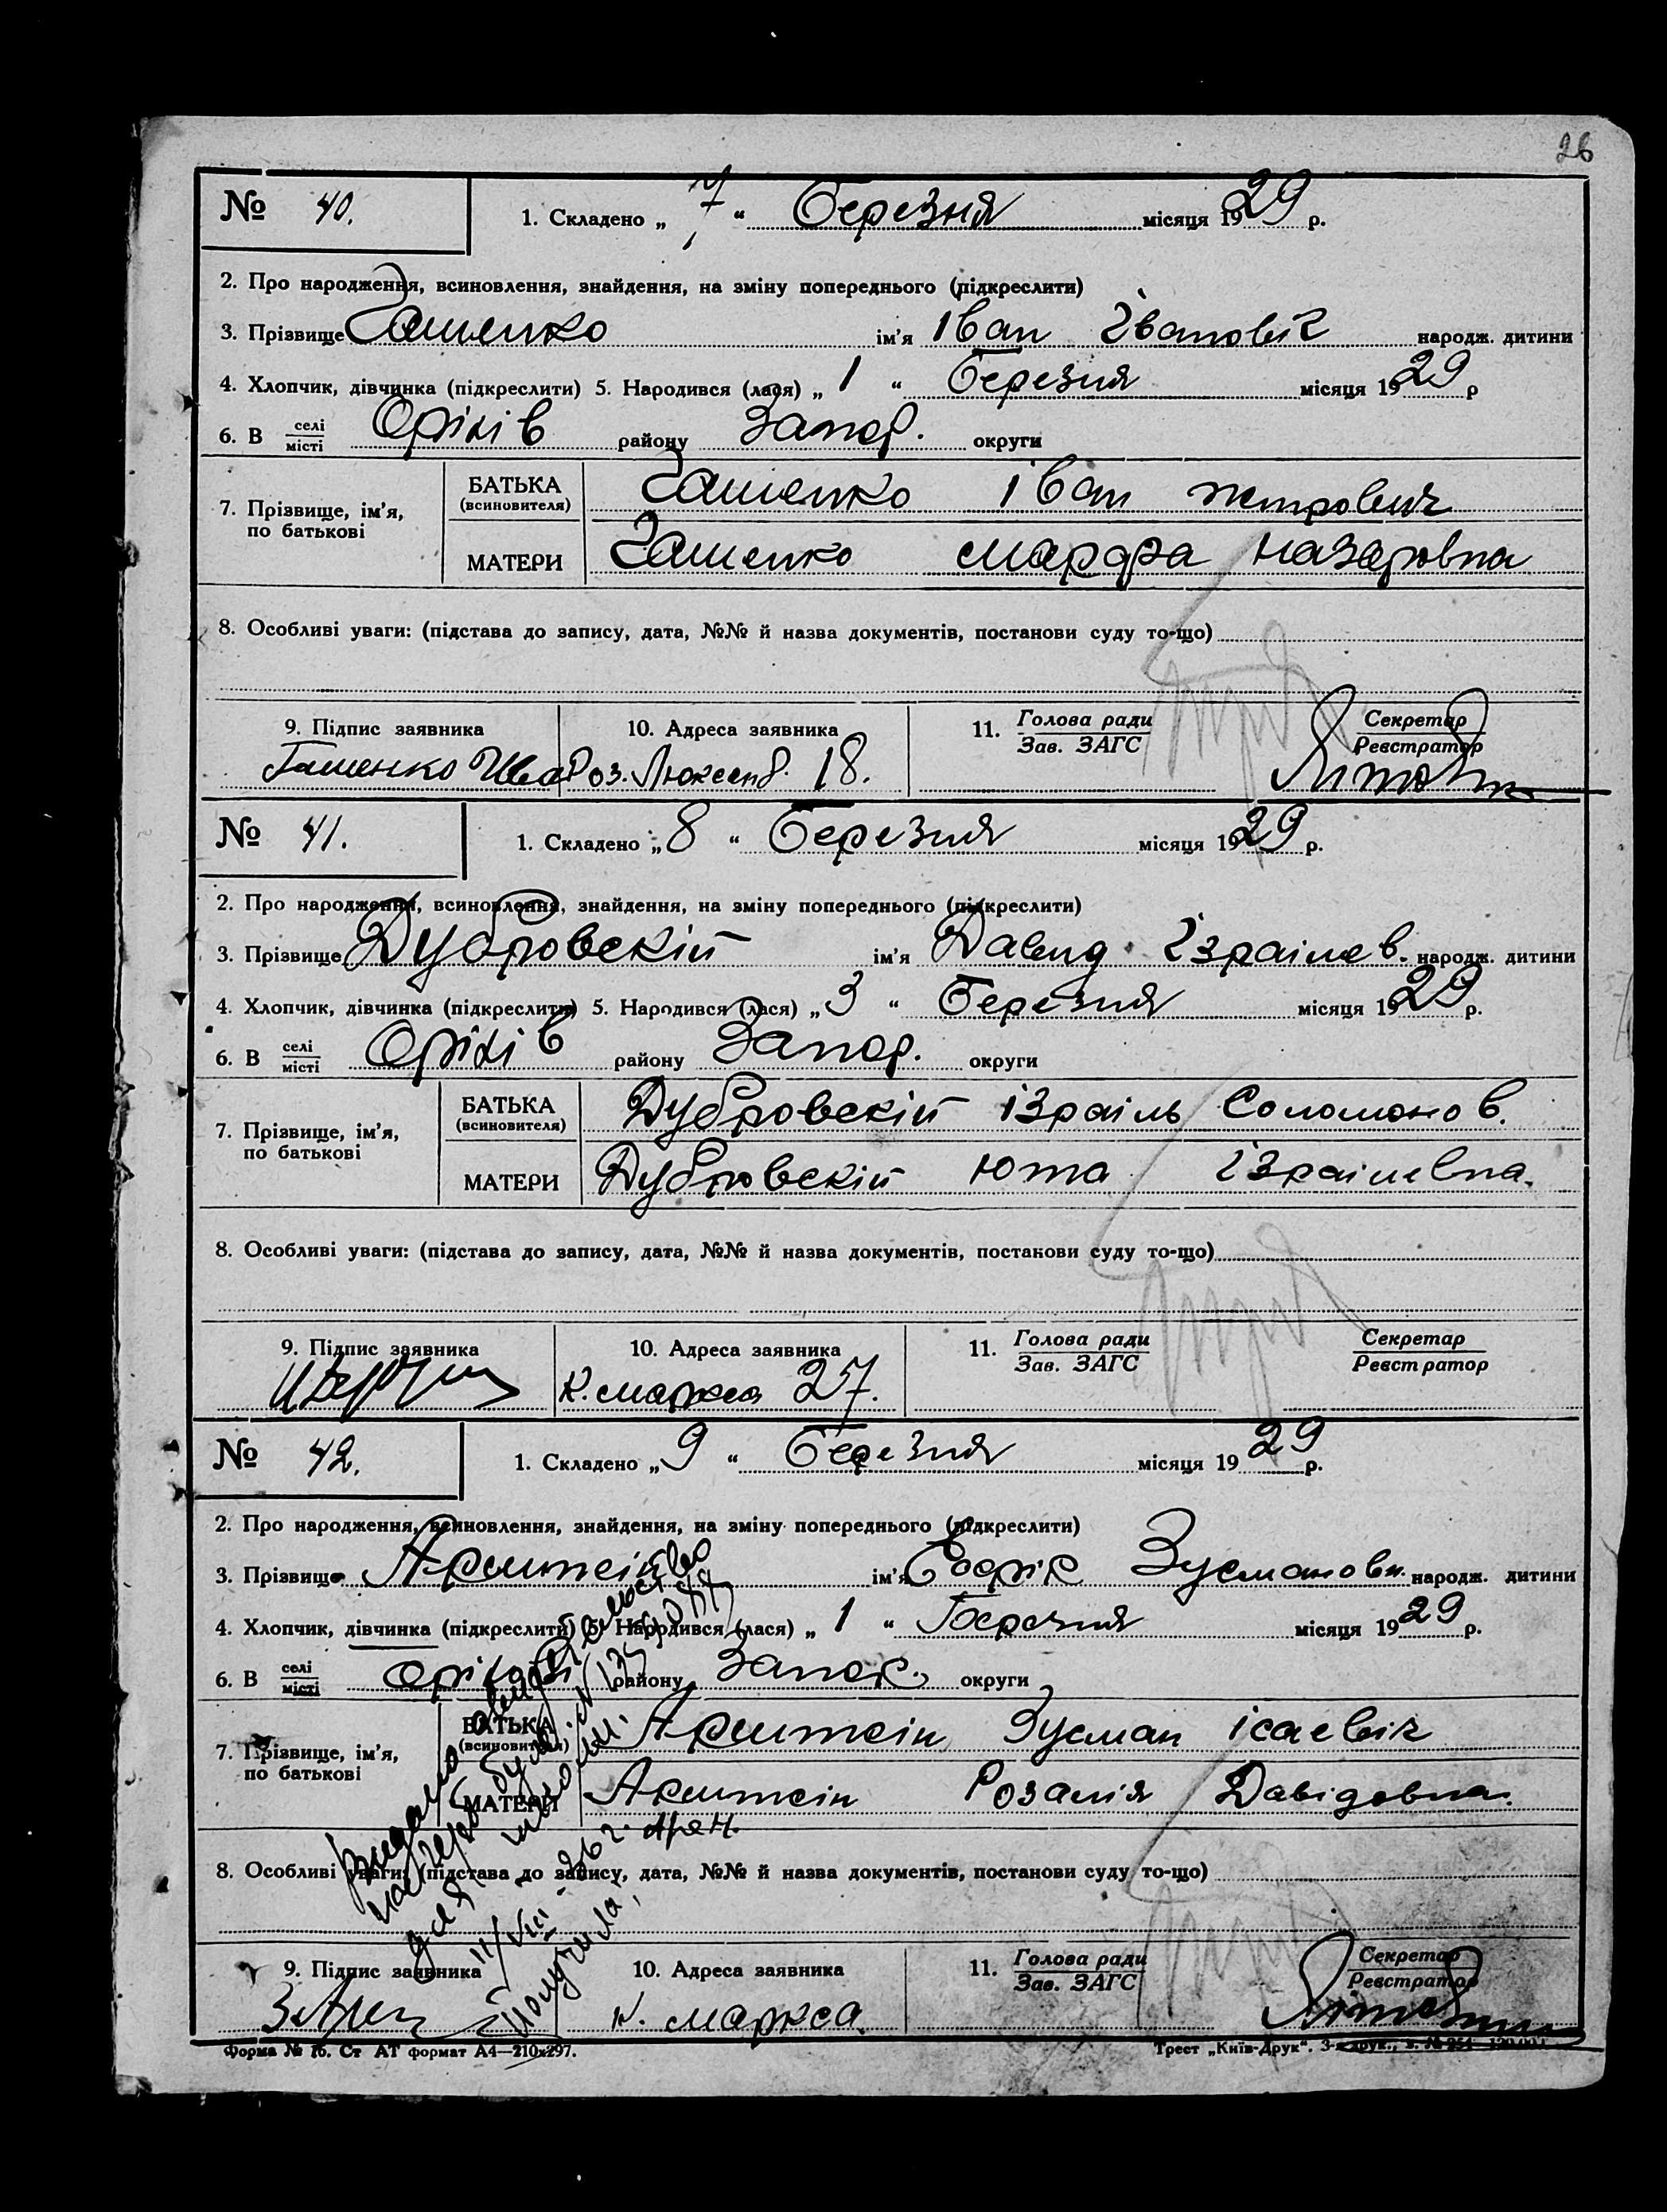 26
№ 40. 1. Складено „ 7 “ Березня місяця 1929 р.
2. Про народження, всиновлення, знайдення, на зміну попереднього (підкреслити)
3. Прізвище Гашенко ім'я Іван Іванович народж. дитини
4. Хлопчик, дівчинка (підкреслити) 5. Народився (лася) „ 1 “ Березня місяця 1929 р
6. В селі/місті Оріхів району Запор. округи
7. Прізвище, ім'я, по батькові
БАТЬКА (всиновителя) Гашенко Іван петрович
МАТЕРИ Гашенко марфа назаровна
8. Особливі уваги: (підстава до запису, дата, №№ й назва документів, постанови суду то-що)
9. Підпис заявника 10. Адреса заявника 11. Голова ради/Зав. ЗАГС Секретар/Реєстратор
Гашенко Ива Роз. Люксенб. 18.
№ 41. 1. Складено „ 8 “ Березня місяця 1929 р.
2. Про народження, всиновлення, знайдення, на зміну попереднього (підкреслити)
3. Прізвище Дубровскій ім'я Давид Ізраілев. народж. дитини
4. Хлопчик, дівчинка (підкреслити) 5. Народився (лася) „ 3 “ Березня місяця 1929 р.
6. В селі/місті Оріхів району Запор. округи
7. Прізвище, ім'я, по батькові
БАТЬКА (всиновителя) Дубровскій ізраіль Соломонов.
МАТЕРИ Дубровскій Юта Ізраілевна.
8. Особливі уваги: (підстава до запису, дата, №№ й назва документів, постанови суду то-що)
9. Підпис заявника 10. Адреса заявника 11. Голова ради/Зав. ЗАГС Секретар/Реєстратор
К. маркса 27.
№ 42. 1. Складено „ 9 “ Березня місяця 1929 р.
2. Про народження, всиновлення, знайдення, на зміну попереднього (підкреслити)
3. Прізвище ім'я Зусмановн. народж. дитини
4. Хлопчик, дівчинка (підкреслити) 5. Народився (лася) „ 1 “ Березня місяця 1929 р.
6. В селі/місті Оріхові району Запор. округи
7. Прізвище, ім'я, по батькові
БАТЬКА (всиновителя) Зусман ісаевіч
МАТЕРИ Розалія Давідовна.
8. Особливі уваги: (підстава до запису, дата, №№ й назва документів, постанови суду то-що)
Видано
для школи.
11/VIII - 36 г.
Получила
9. Підпис заявника 10. Адреса заявника 11. Голова ради/Зав. ЗАГС Секретар/Реєстратор
К. маркса.
Форма № 16. Ст АТ формат А4—210x297. Трест „Київ-Друк“.